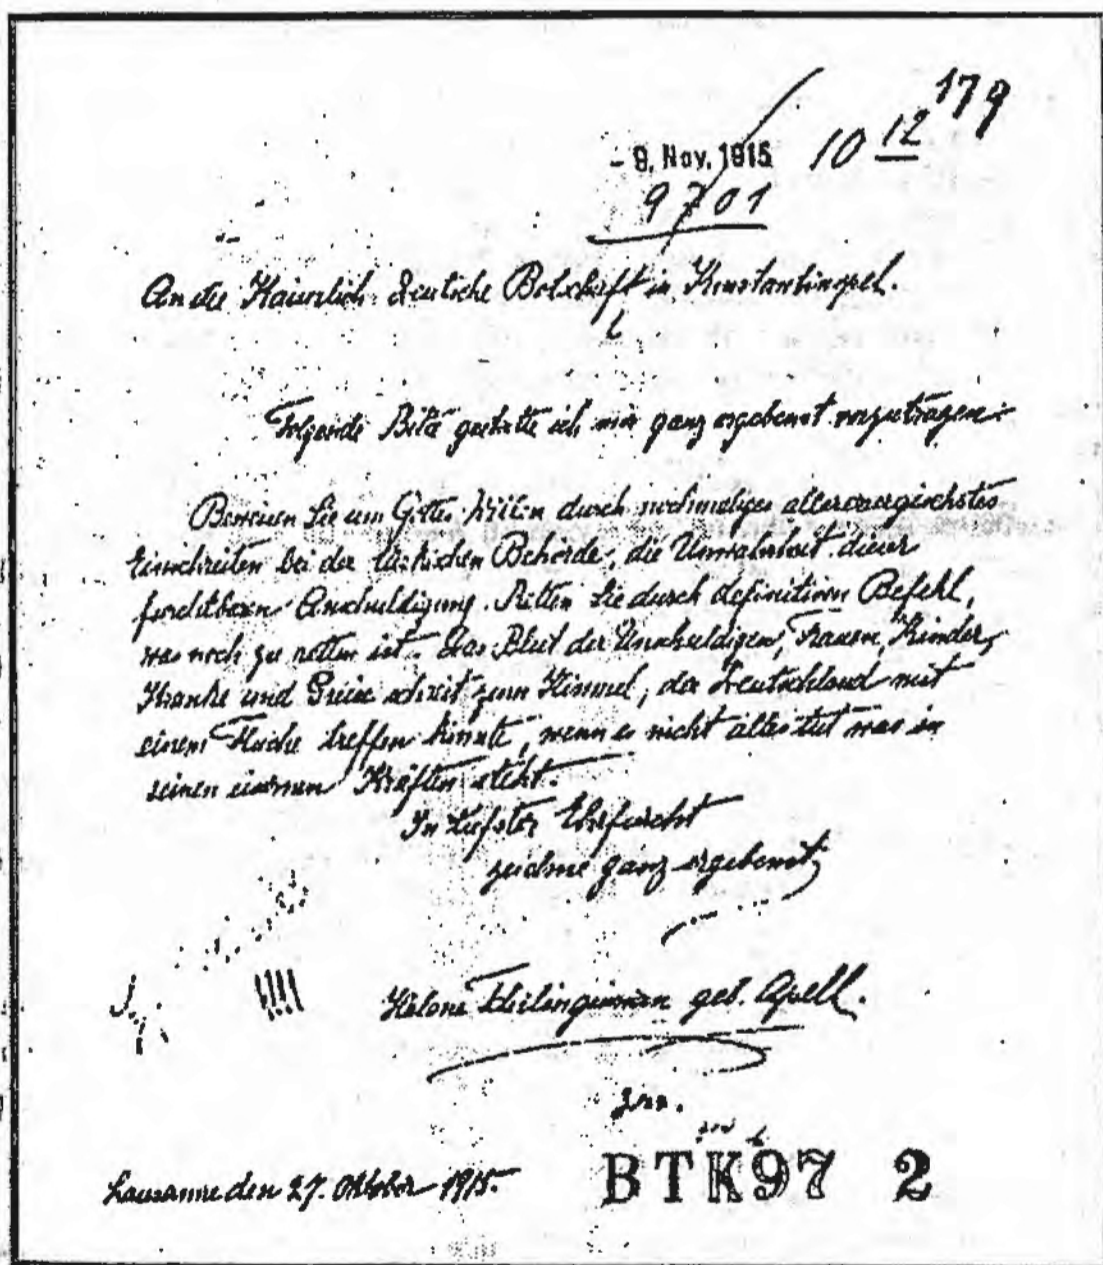 179
10 12
- 9. Nov. 1915
9701
An die Kaiserlich Deutsche Botschaft in Konstantinopel.
Folgende Bitte gestatte ich mir ganz ergebenst vorzutragen:
Beweisen Sie um Gottes Willen durch nochmaliges allerenergischstes
Einschreiten bei der türkischen Behörde, die Unwahrheit dieser
furchtbaren Anschuldigung. Retten Sie durch definitiven Befehl,
was noch zu retten ist. Das Blut der Unschuldigen, Frauen, Kinder,
Kranke und Greise schreit zum Himmel, der Deutschland mit
einem Fluche treffen könnte, wenn es nicht alles tut was in
seinen eisernen Kräften steht.
In tiefster Ehrfurcht
zeichne ganz ergebenst
!!!!
Helene geb. Apell.
BTK97 2
Lausanne den 27. Oktober 1915.